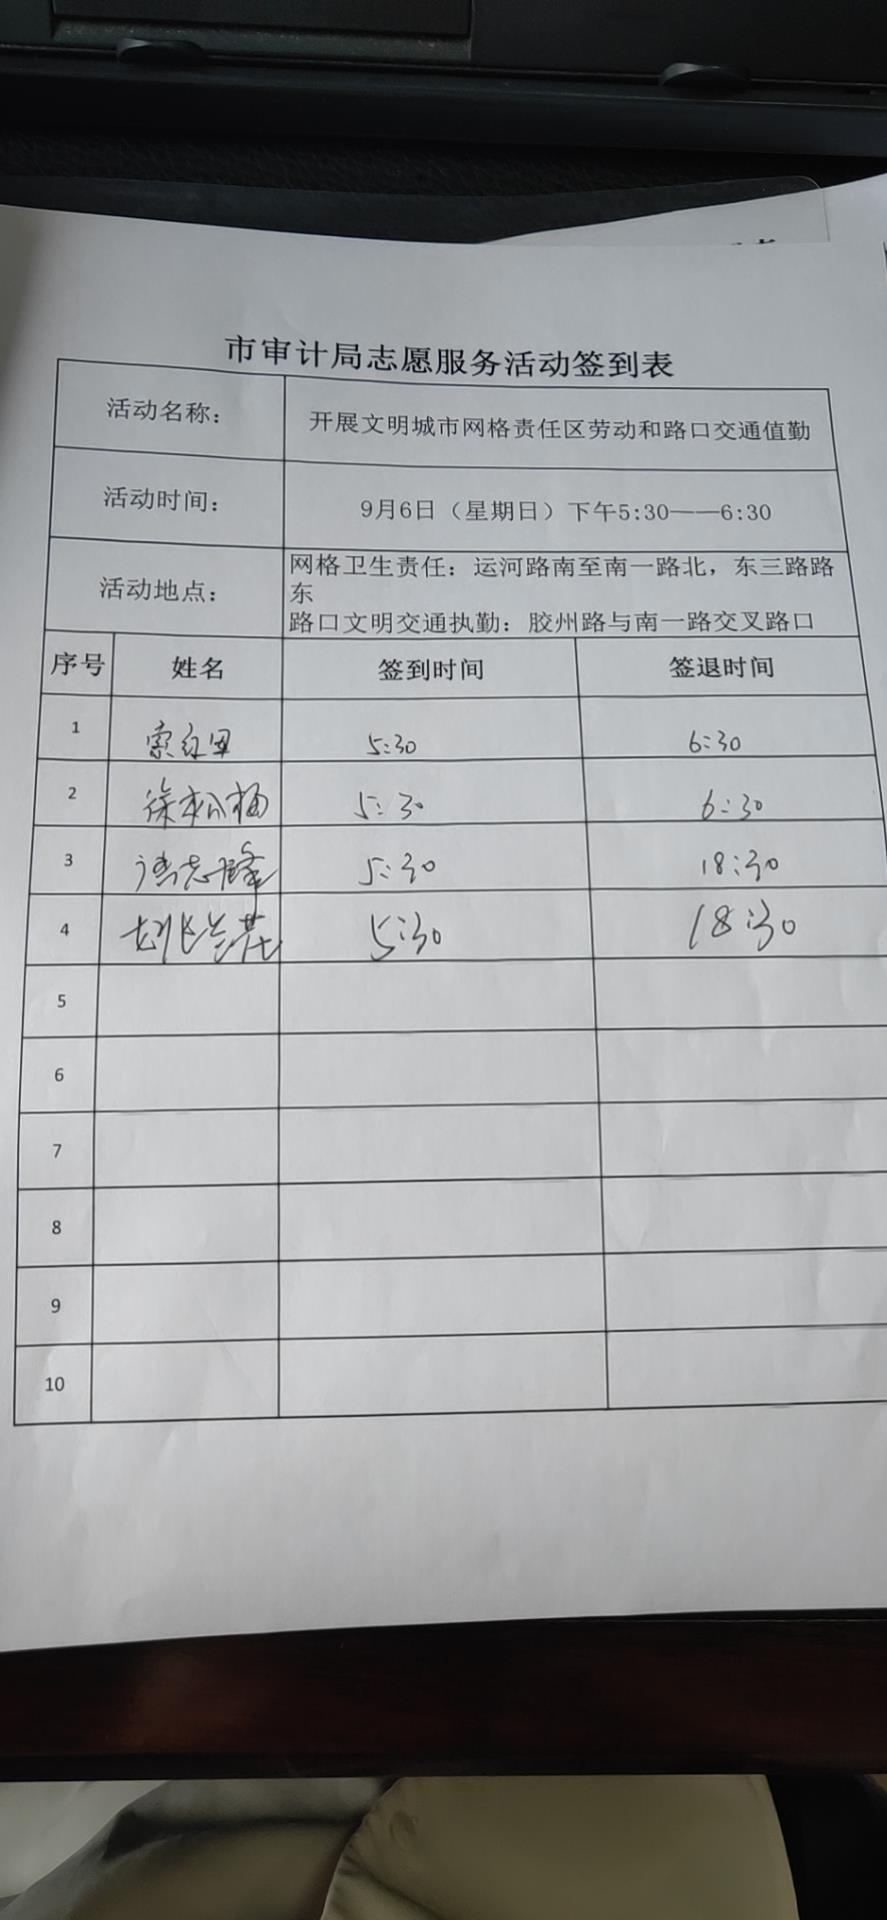 市审计局志愿服务活动签到表
活动名称： 开展文明城市网格责任区劳动和路口交通值勤
活动时间： 9月6日（星期日）下午5:30——6:30
活动地点： 网格卫生责任：运河路南至南一路北，东三路路
东
路口文明交通执勤：胶州路与南一路交叉路口
序号 姓名 签到时间 签退时间
1 5:30 6:30
2 5:30 6:30
3 5:30 18:30
4 5:30 18:30
5
6
7
8
9
10